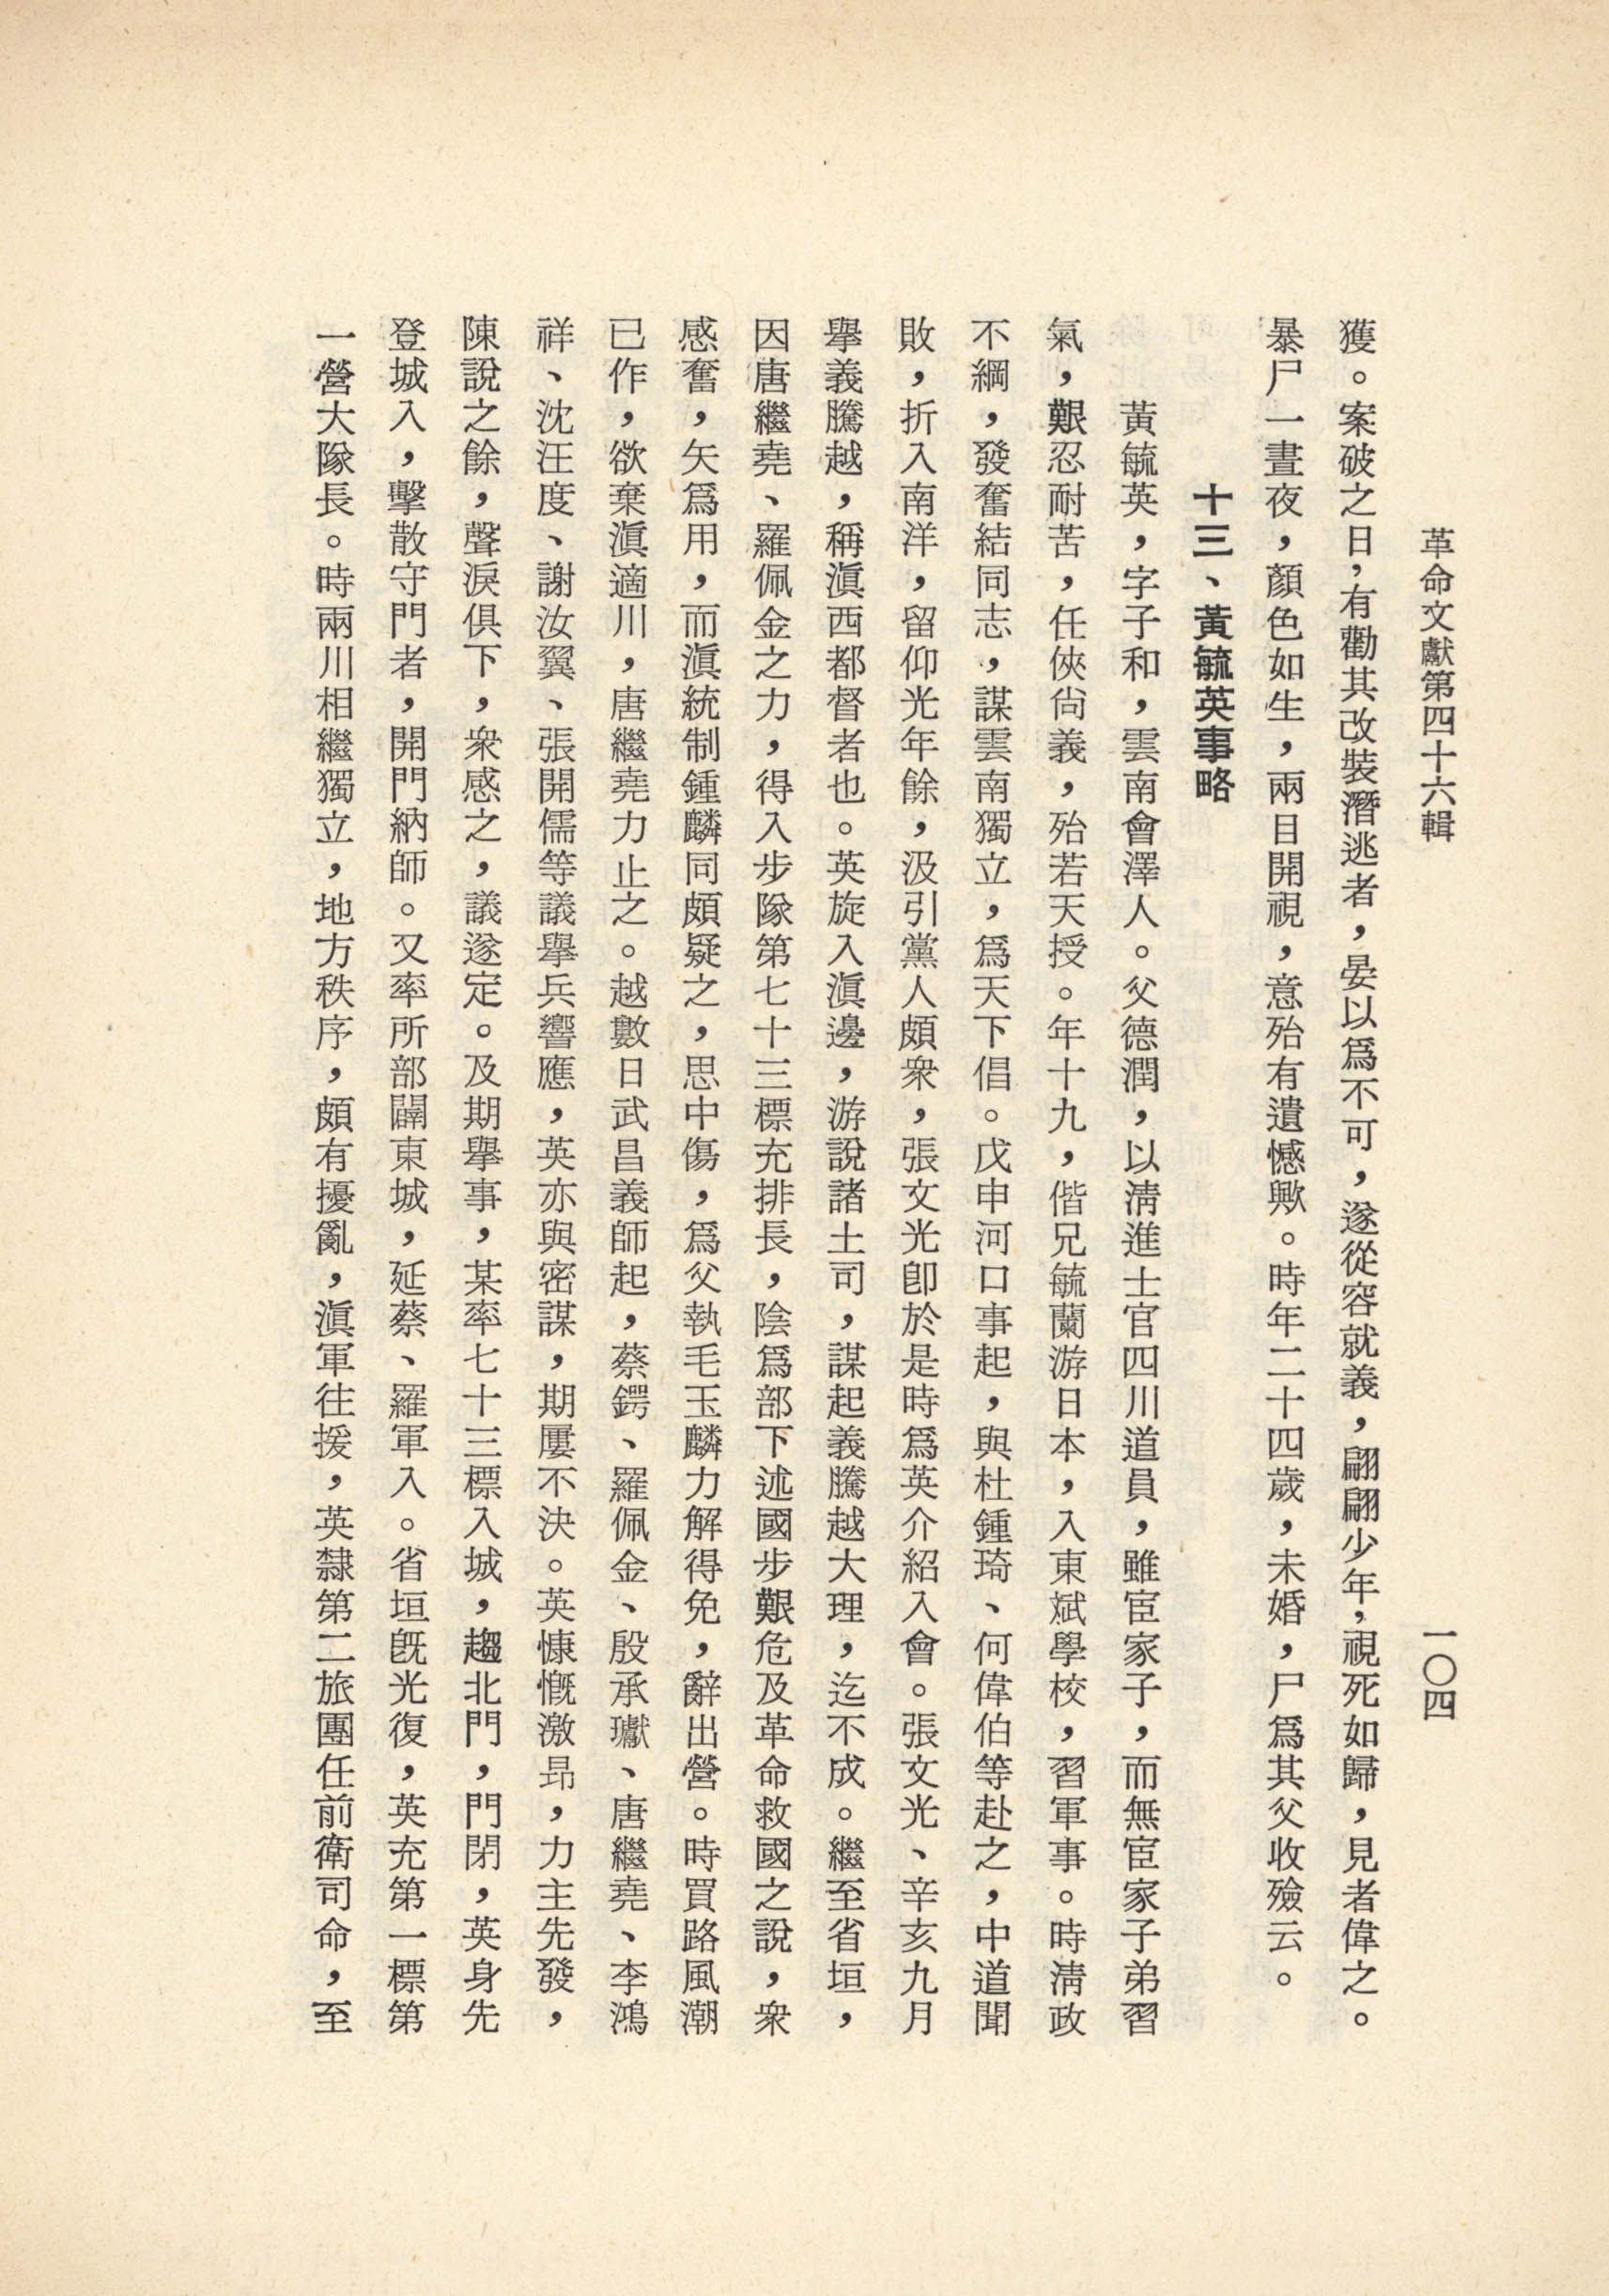 革命文獻第四十六輯
一〇四
獲。案破之日，有勸其改裝潛逃者，晏以爲不可，遂從容就義，翩翩少年，視死如歸，見者偉之。
暴尸一晝夜，顏色如生，兩目開視，意殆有遺憾歟。時年二十四歲，未婚，尸爲其父收殮云。
十三、黃毓英事略
黃毓英，字子和，雲南會澤人。父德潤，以淸進士官四川道員，雖宦家子，而無宦家子弟習
氣，艱忍耐苦，任俠尙義，殆若天授。年十九，偕兄毓蘭游日本，入東斌學校，習軍事。時淸政
不綱，發奮結同志，謀雲南獨立，爲天下倡。戊申河口事起，與杜鍾琦、何偉伯等赴之，中道聞
敗，折入南洋，留仰光年餘，汲引黨人頗衆，張文光卽於是時爲英介紹入會。張文光、辛亥九月
擧義騰越，稱滇西都督者也。英旋入滇邊，游說諸土司，謀起義騰越大理，迄不成。繼至省垣，
因唐繼堯、羅佩金之力，得入步隊第七十三標充排長，陰爲部下述國步艱危及革命救國之說，衆
感奮，矢爲用，而滇統制鍾麟同頗疑之，思中傷，爲父執毛玉麟力解得免，辭出營。時買路風潮
已作，欲棄滇適川，唐繼堯力止之。越數日武昌義師起，蔡鍔、羅佩金、殷承瓛、唐繼堯、李鴻
祥、沈汪度、謝汝翼、張開儒等議擧兵響應，英亦與密謀，期屢不決。英慷慨激昂，力主先發，
陳說之餘，聲淚俱下，衆感之，議遂定。及期擧事，某率七十三標入城，趨北門，門閉，英身先
登城入，擊散守門者，開門納師。又率所部闢東城，延蔡、羅軍入。省垣旣光復，英充第一標第
一營大隊長。時兩川相繼獨立，地方秩序，頗有擾亂，滇軍往援，英隸第二旅團任前衛司命，至